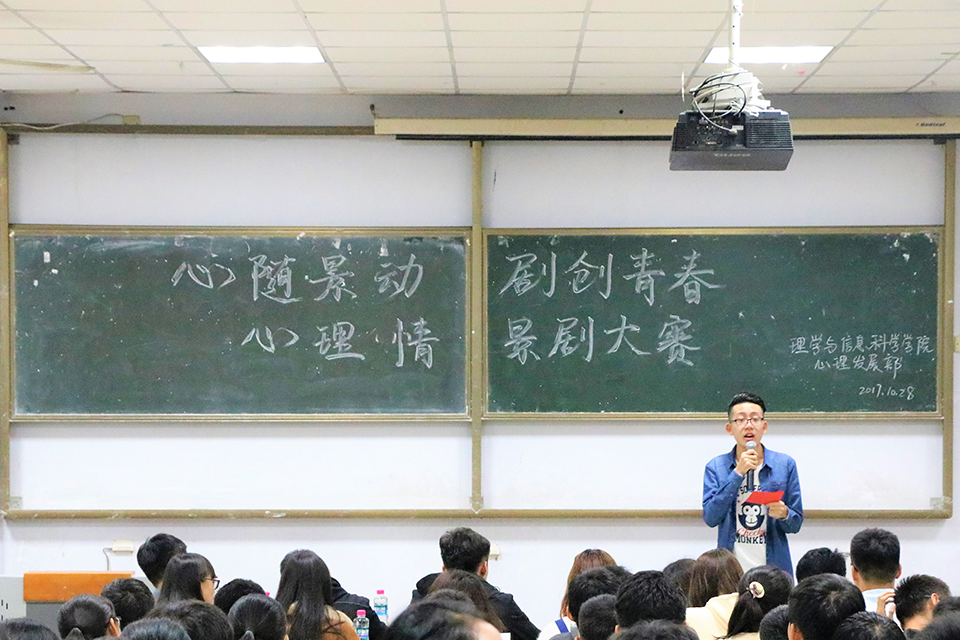 心随景动 剧创青春
心理情景剧大赛
理学与信息科学学院
心理发展部
2017.10.28
MONKEY